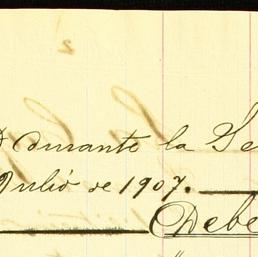 durante la Se
Julió de 1907.
Debe